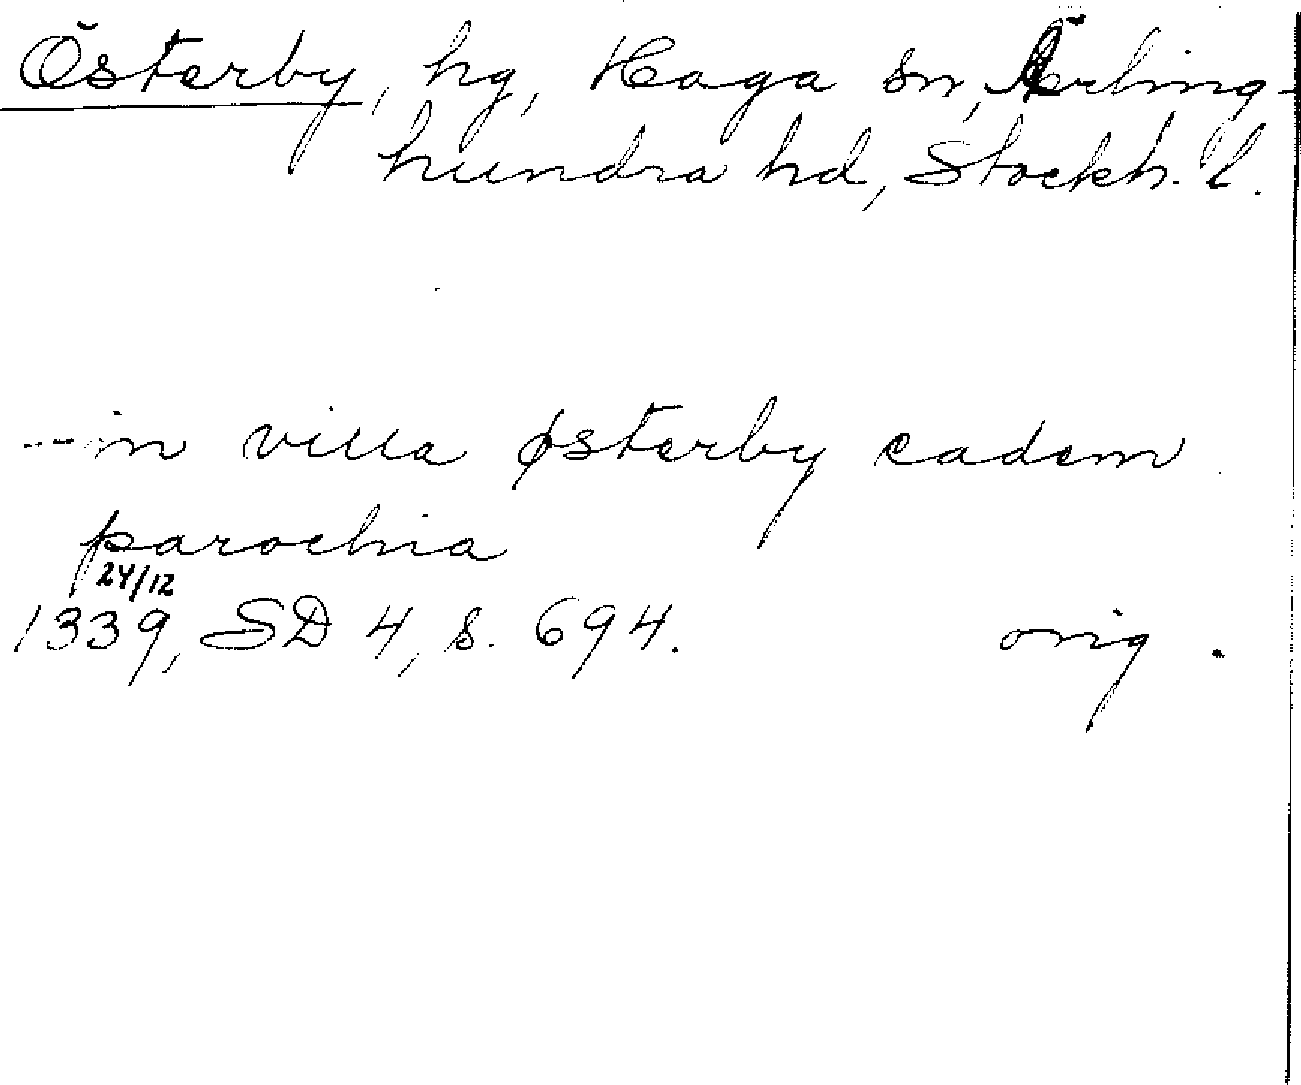 Österby, hg, Haga sn, Ärling-
hundra hd, Stockh. l.
--in villa østerby eadem
parochia
24/12
1339, SD 4, s. 694. orig.